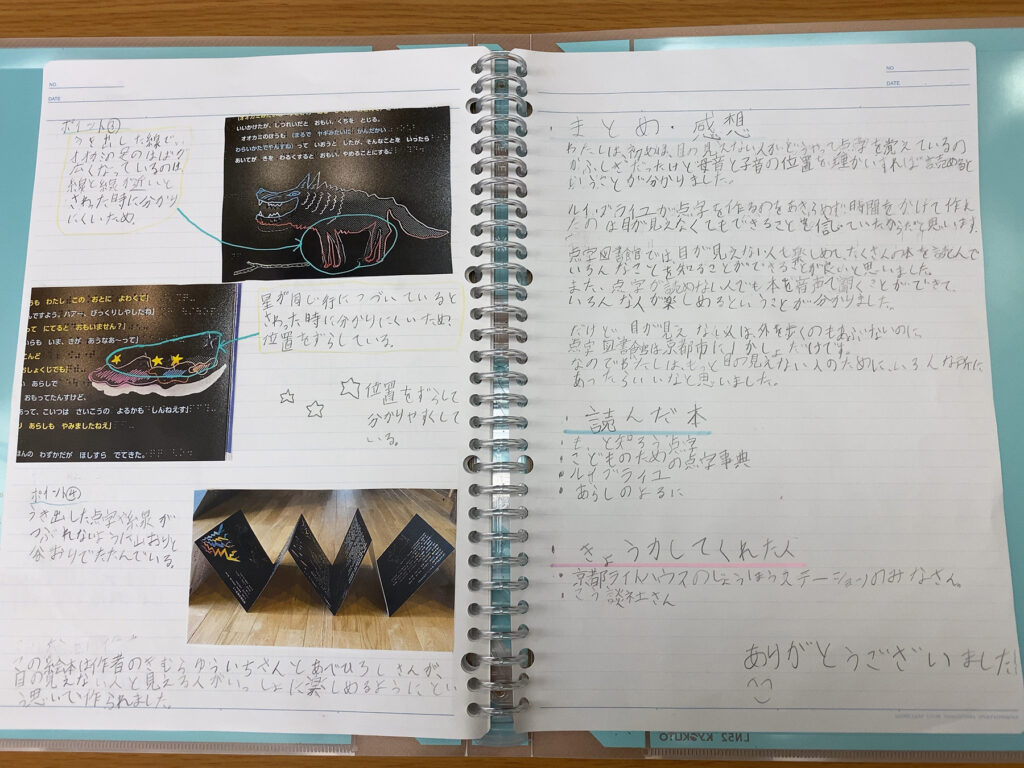 NO.
DATE
ポイント③
うき出した線で、
オオカミの足のはばが
広くなっているのは
線と線が近いと
さわった時に分かり
にくいため
いいかけたが、しつれいだと おもい、くちを とじる。
オオカミのほうも 〔まるで ヤギみたいに かんだかい
わらいかたでやんすね〕 って いおうと したが、そんなことを いったら
あいてが きを わるくすると おもい、やめることにする。
星が同じ行につづいていると
さわった時に分かりにくいため
位置をずらしている。
うも わたし この おとに よわくて」
んですよう。ハアー、びっくりしやしたね」
って にてると おもいません?」
いらも いま、きが あうなあ〜って」
こんど
おしょくじでも」
い あらしで
おもってたんすけど、
あって、こいつは さいこうの よるかも しんねえす」
り あらしも やみましたねえ」
ほんの わずかだが ほしずら でてきた。
位置をずらして
分かりやすくして
いる。
ポイント④
うき出した点字や絵が
つぶれないように山おりと
谷おりでたたんでいる。
この絵本は作者のきむらゆういちさんとあべひろしさんが、
目の見えない人と見える人がいっしょに楽しめるようにとい
う思いで作られました。
NO.
DATE
・まとめ・感想
わたしは、初めは、目の見えない人がどうやって点字を覚えているの
かふしぎだったけど母音と子音の位置を理かいすれば読めると
いうことが分かりました。
ルイ・ブライユが点字を作るのをあきらめず時間をかけて作れ
たのは目が見えなくてもできることを信じていたからだと思います。
点字図書館では目が見えない人も楽しめてたくさんの本を読んで
いろんなことを知ることができることが良いと思いました。
また、点字が読めない人でも本を音声で聞くことができて、
いろんな人が楽しめるということが分かりました。
だけど、目が見えない人は外を歩くのもあぶないのに
点字図書館は京都市に1かしょだけです。
なのでわたしは、もっと目の見えない人のために、いろんな所に
あったらいいなと思いました。
・読んだ本
・もっと知ろう点字
・こどものための点字事典
・ルイブライユ
・あらしのよるに
・きょう力してくれた人
・京都ライトハウスのじょうほうステーションのみなさん。
・こう談社さん
ありがとうございました!
LN52 KYOKUTO